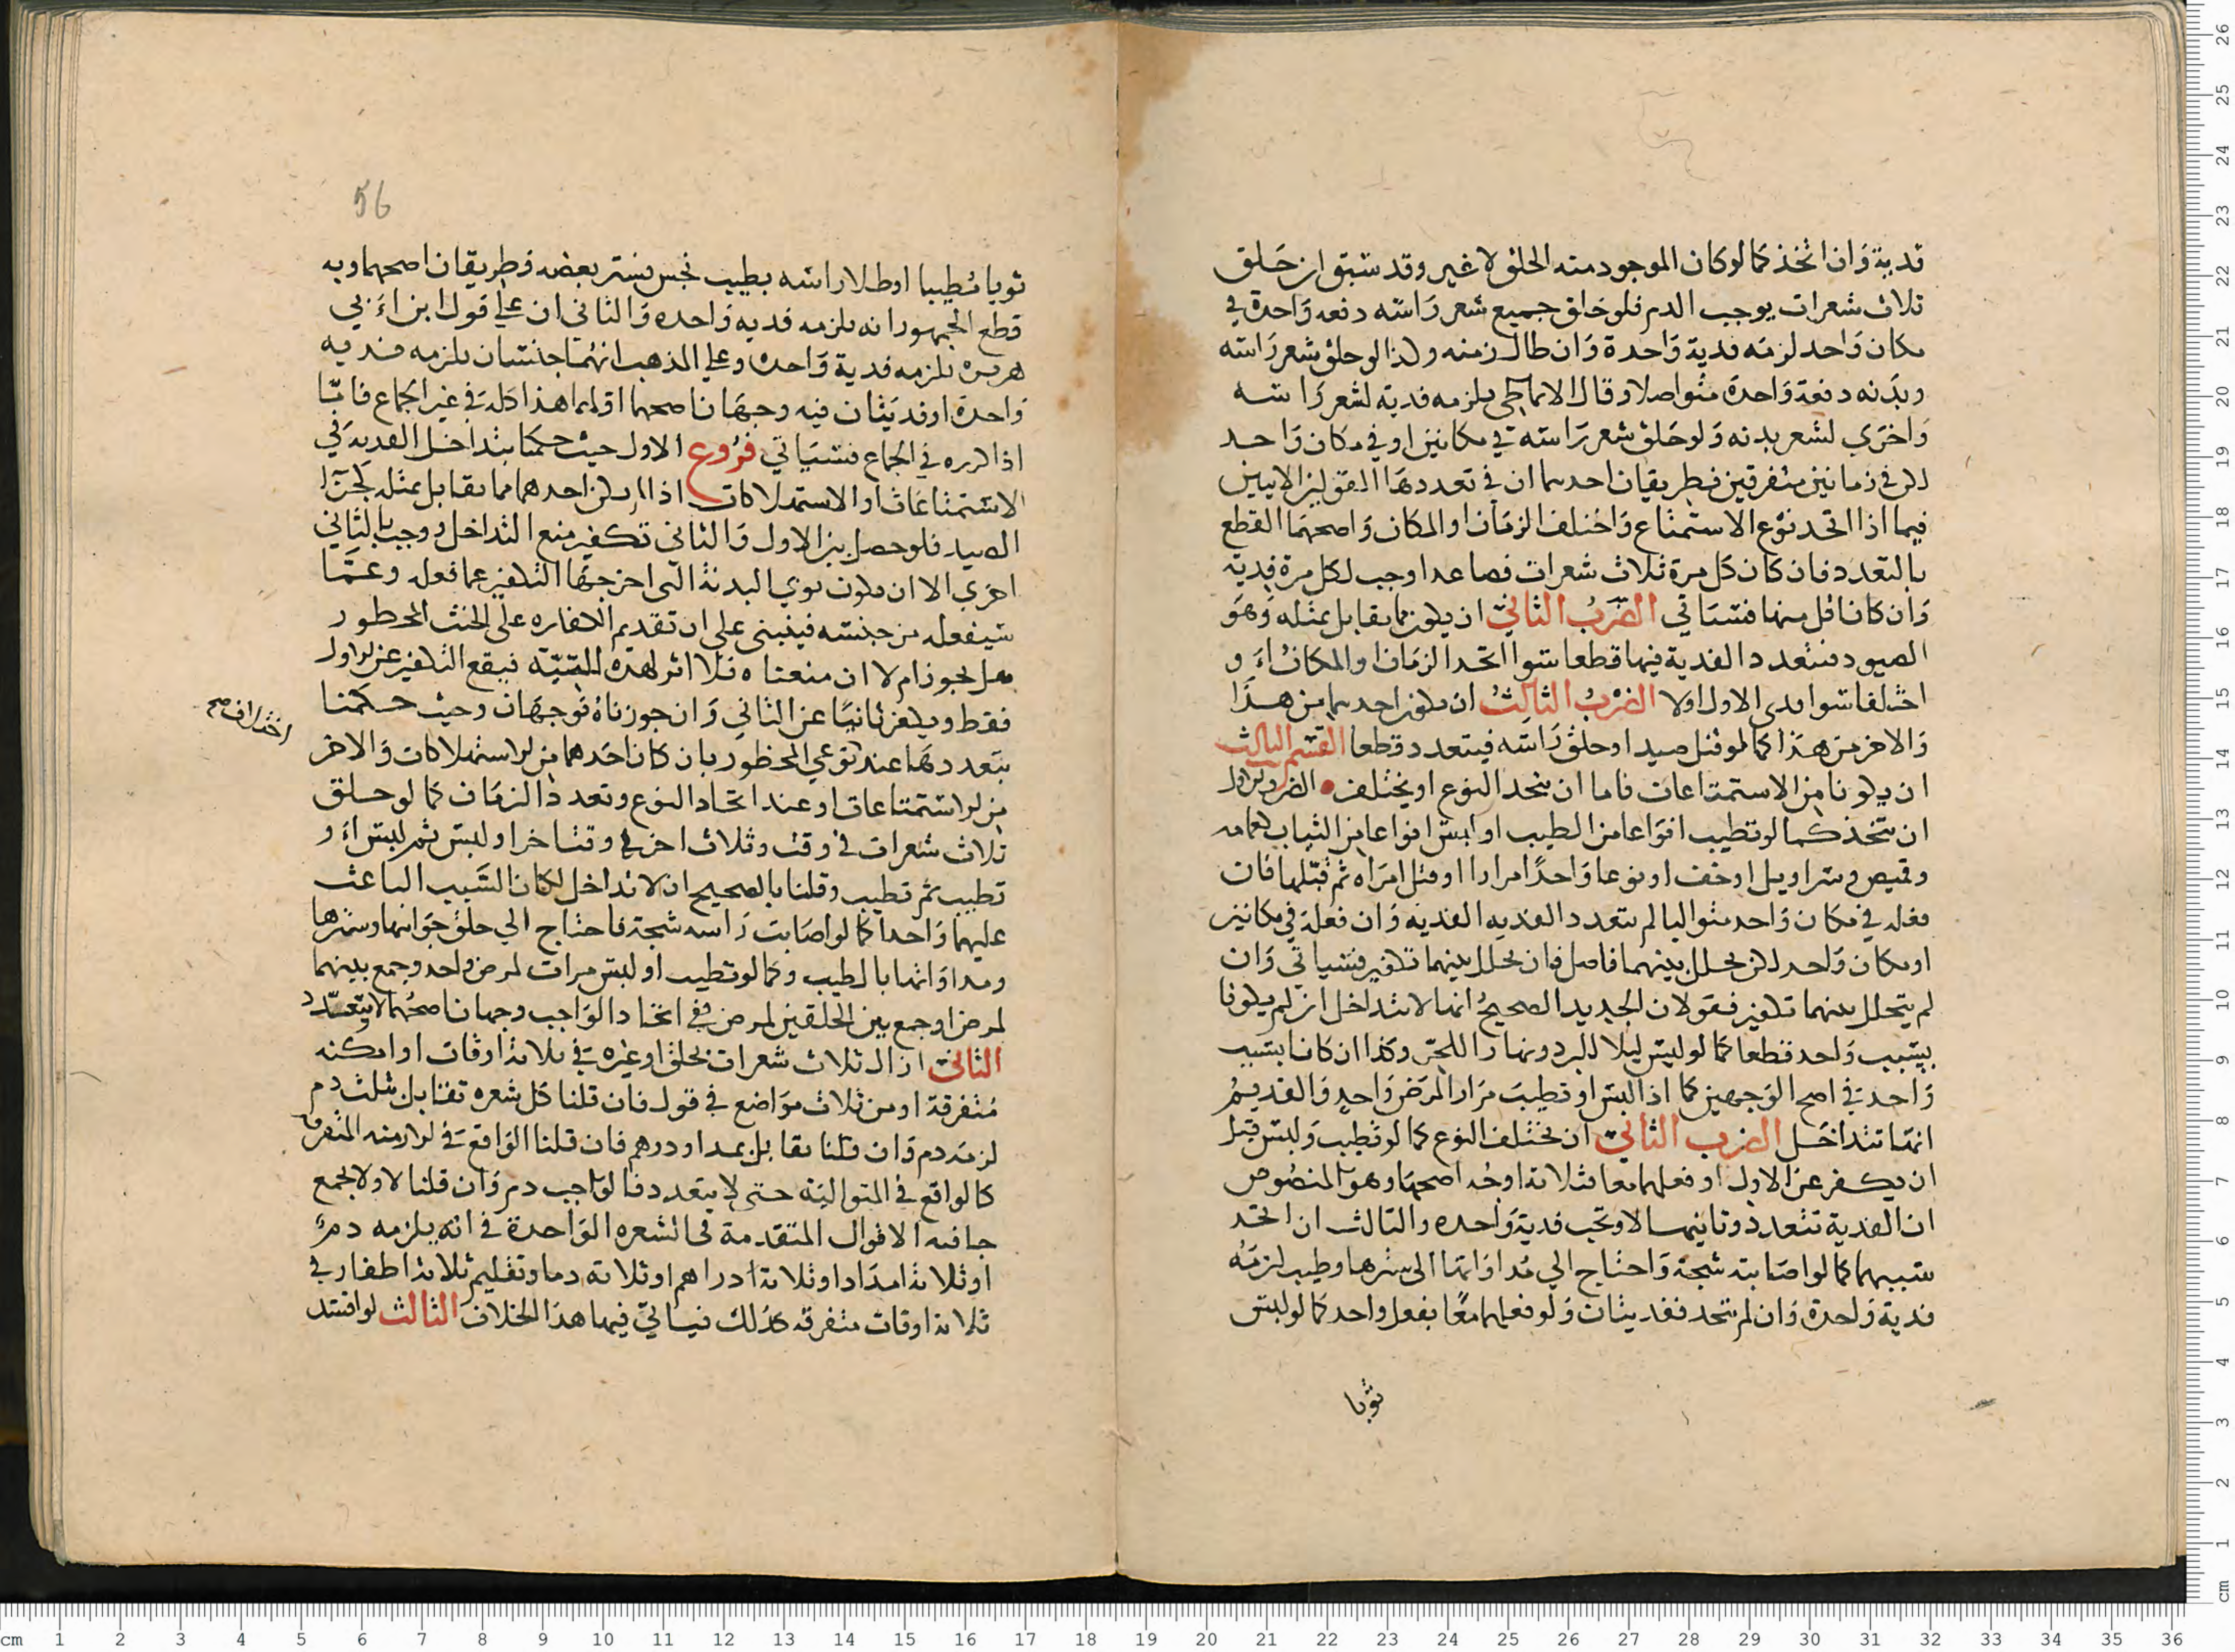 فدية وان اتخذ كما لو كان الموجود منه الحلق لا غير وقد سبق ان حلق
ثلاث شعرات يوجب الدم فلو حلق جميع شعر راسه دفعه واحدة في
مكان واحد لزمه فدية واحدة وان طال زمنه ولذا لو حلق شعر راسه
وبدنه دفعة واحدة متواصلا وقال الانماطي يلزمه فدية لشعر راسه
واخرى لشعر بدنه ولو حلق شعر راسه في مكانين او في مكان واحد
لكن في زمانين متفرقين فطريقان احدهما ان في تعددها القولين الاتيين
فيما اذا اتحد نوع الاستمتاع واختلف الزمان او المكان واصحهما القطع
بالتعدد فان كان كل مرة ثلاث شعرات فصاعدا وجب لكل مرة فدية
وان كان اقل منها فسياتي الضرب الثاني ان يكون مما يقابل بمثله وهو
الصيود فتتعدد الفدية فيها قطعا سوا اتحد الزمان او المكان او
اختلفا سوا فدى الاول او لا الضرب الثالث ان يكون احدهما من هذا
والاخر من هذا كما لو قتل صيدا وحلق راسه فيتعدد قطعا القسم الثالث
ان يكونا من الاستمتاعات فاما ان يتحد النوع او يختلف الضرب الاول
ان يتخذ كما لو تطيب انواعا من الطيب او لبس انواعا من الثياب كعمامه
وقميص وسراويل او خف او نوعا واحدا مرارا او قبل امراه ثم قبلها فان
فعله في مكان واحد متواليا لم يتعدد الفديه الفديه وان فعله في مكانين
او مكان واحد لكن تخلل بينهما فاصل فان تخلل بينهما تكفير فسياتي وان
لم يتخلل بينهما تكفير فقولان الجديد الصحيح انها لا تتداخل ان لم يكونا
بسبب واحد قطعا كما لو لبس ليلا للبرد ونهارا للحر وكذا ان كانا بسبب
واحد في اصح الوجهين كما اذا لبس او تطيب مرارا لمرض واحد والقديم
انها تتداخل الضرب الثاني ان يختلف النوع كما لو تطيب ولبس قبل
ان يكفر عن الاول او فعلهما معا فثلاثة اوجه اصحها وهو المنصوص
ان الفدية تتعدد وثانيها لا وتجب فدية واحده والثالث ان اتحد
سببهما كما لو اصابته شجة واحتاج الى مداواتها الى سترها وطيب لزمه
فدية واحدة وان لم يتحد ففديتان ولو فعلهما معا بفعل واحد كما لو لبس
ثوبا
56
ثوبا مطيبا او طلا راسه بطيب نجس يستر بعضه فطريقان اصحهما وبه
قطع الجمهور انه يلزمه فديه واحده والثاني ان على قول ابن ابي
هريره يلزمه فدية واحدة وعلى المذهب انهما جنسان يلزمه فديه
واحدة او فديتان فيه وجهان اصحهما اولهما هذا كله في غير الجماع فاما
اذا كرره في الجماع فسياتي فروع الاول حيث حكمنا بتداخل الفديه في
الاستمتاعات او الاستهلاكات اذا لم يكن احدهما مما يقابل بمثله كجزا
الصيد فلو حصل بين الاول والثاني تكفير منع التداخل ووجب بالثاني
اخرى الا ان يكون نوى البدنة التي اخرجها التكفير عما فعله وعما
سيفعله من جنسه فينبني على ان تقديم الكفاره على الحنث المحظور
هل يجوز ام لا ان منعناه فلا اثر لهذه النية فيقع التكفير عن الاول
فقط ويكفر ثانيا عن الثاني وان جوزناه فوجهان وحيث حكمنا
اختلاف صح
بتعددها عند نوعي المحظور بان كان احدهما من الاستهلاكات والاخر
من الاستمتاعات او عند اتحاد النوع وتعدد الزمان كما لو حلق
ثلاث شعرات في وقت وثلاث اخر في وقت اخر او لبس ثم لبس او
تطيب ثم تطيب وقلنا بالصحيح ان لا تداخل لكان السبب الباعث
عليهما واحدا كما لو اصابت راسه شجة فاحتاج الى حلق جوانبها وسترها
ومداواتها بالطيب وكما لو تطيب او لبس مرات لمرض واحد وجمع بينهما
لمرض او جمع بين الحلقين لمرض ففي اتحاد الواجب وجهان اصحهما لا يتعدد
الثاني ازال ثلاث شعرات بحلق او غيره في ثلاثة اوقات او امكنه
متفرقة او من ثلاث مواضع في قول فان قلنا كل شعره تقابل بثلث دم
لزمه دم وان قلنا تقابل بمد او درهم فان قلنا الواقع في الازمنه المتفرقة
كالواقع في المتوالية حتى لا يتعدد فالواجب دم وان قلنا لا ولا يجمع
جا فيه الاقوال المتقدمة في الشعره الواحدة في انه يلزمه دم
او ثلاثة امداد او ثلاثة ادراهم او ثلاثه دما وتقليم ثلاثة اظفار في
ثلاثة اوقات متفرقه كذلك فياتي فيها هذا الخلاف الثالث لو افسد